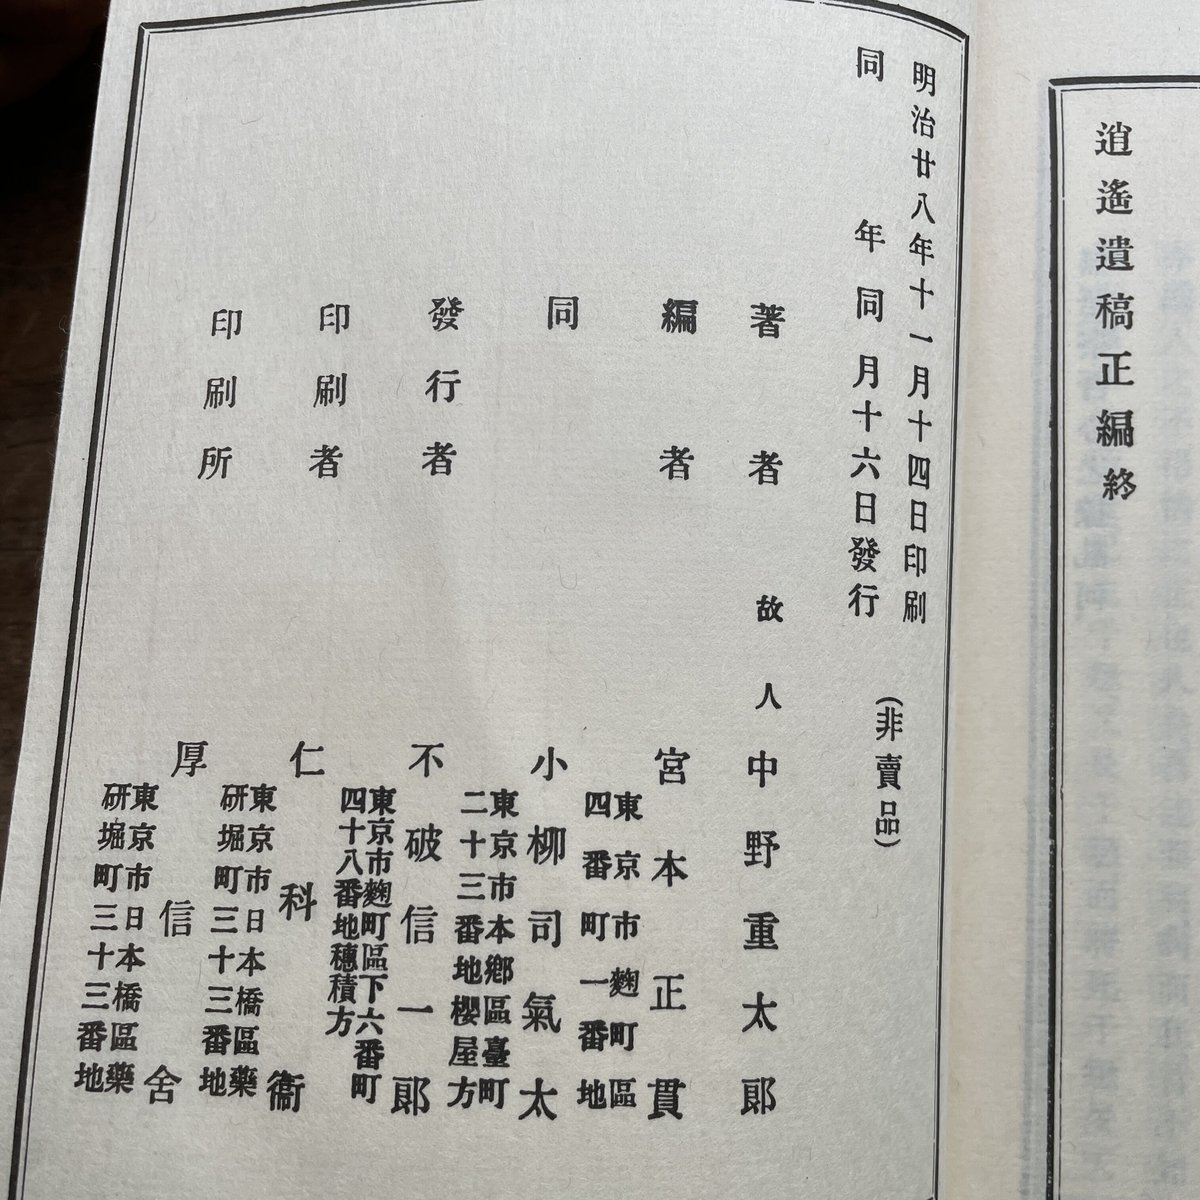 逍遙遺稿正編終
明治廿八年十一月十四日印刷
同年同月十六日發行
(非賣品)
著者 故人 中野重太郎
編者 宮本正貫
東京市麴町區
四番町一番地
同 小柳司氣太
東京市本鄕區臺町
二十三番地櫻屋方
發行者 不破信一郎
東京市麴町區下六番町
四十八番地穗積方
印刷者 仁科衞
東京市日本橋區藥
研堀町三十三番地
印刷所 厚信舍
東京市日本橋區藥
研堀町三十三番地